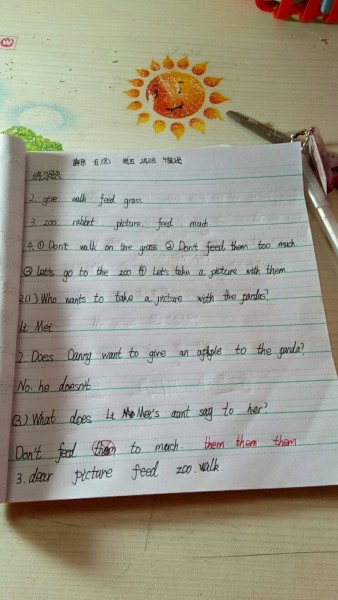 2. give walk feed grass
3. zoo rabbit picture feed much
4. ① Don't walk on the grass ② Don't feed them too much
③ let's go to the zoo ④ Let's take a picture with them
2.(1) Who wants to take a picture with the pandas?
Li Mei
2. Does Danny want to give an apple to the panda?
No. he doesn't
(3.) What does Li Mei's aunt say to her?
Don't feed them to much. them them them
3. dear picture feed zoo. walk.